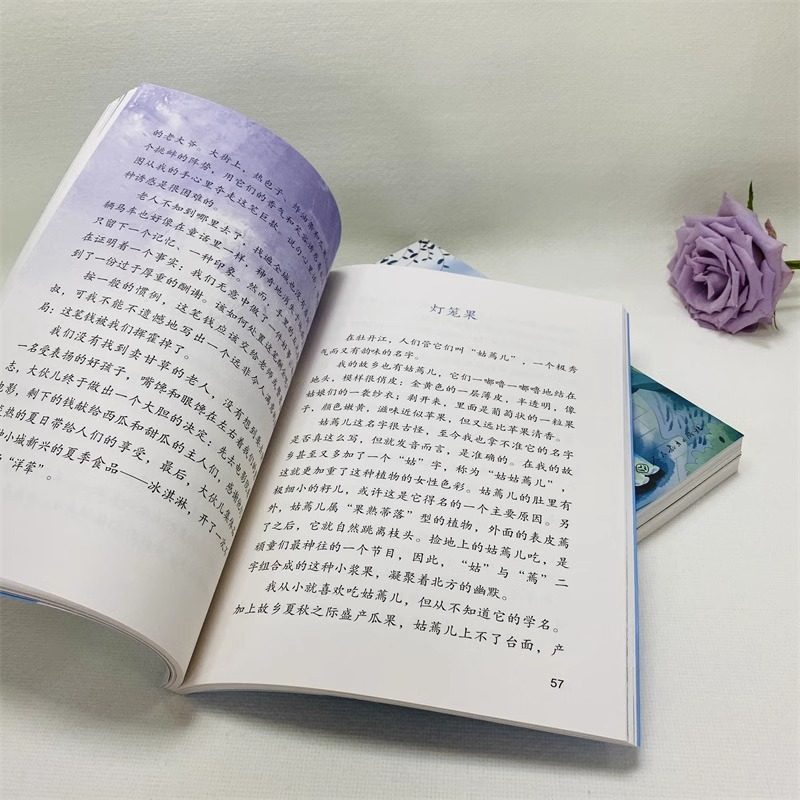 的老大爷。大街上，热包子、炸油条和
个挑衅的阵势，用它们的香气和笑容诱
图从我的手心里夺走这笔巨款，说句心里
种诱惑是很困难的。
老人不知到哪里去了，找遍全城也没
辆马车也好像在童话里一样，神奇地消
只留下一个记忆、一种印象。然而，手
在证明着一个事实：我们无意中做了一件好事
到了一份过于厚重的酬谢。该如何处置这笔钱
按一般的惯例，这笔钱应该交给老师或
叔，可我不能不遗憾地写出一个远非令人满意
局：这笔钱被我们挥霍掉了。
我们没有找到卖甘草的老人，没有想到要
一名受表扬的好孩子，嘴馋和眼馋在左右着我
志，大伙儿终于做出一个大胆的决定，先去电影院
电影，剩下的钱献给西瓜和甜瓜的主人们，感谢他
炎热的夏日带给人们的享受，最后，大伙儿集体
种小城新兴的夏季食品——冰淇淋，开了一次
“洋荤”。
灯笼果
在牡丹江，人们管它们叫“姑蔫儿”，一个极秀
气而又有韵味的名字。
我的故乡也有姑蔫儿，它们一嘟噜一嘟噜地结在
地头，模样很俏皮：金黄色的一层薄皮，半透明，像
姑娘们的一袭纱衣；剥开来，里面是葡萄状的一粒果
子，颜色嫩黄，滋味近似苹果，但又远比苹果清香。
姑蔫儿这名字很古怪，至今我也拿不准它的名字
是否真这么写，但就发音而言，是准确的。在我的故
乡甚至又多加了一个“姑”字，称为“姑姑蔫儿”，
这就更加重了这种植物的女性色彩。姑蔫儿的肚里有
极细小的籽儿，或许这是它得名的一个主要原因。另
外，姑蔫儿属“果熟蒂落”型的植物，外面的表皮蔫
了之后，它就自然跳离枝头。捡地上的姑蔫儿吃，是
顽童们最神往的一个节目，因此，“姑”与“蔫”二
字组合成的这种小浆果，凝聚着北方的幽默。
我从小就喜欢吃姑蔫儿，但从不知道它的学名。
加上故乡夏秋之际盛产瓜果，姑蔫儿上不了台面，产
57